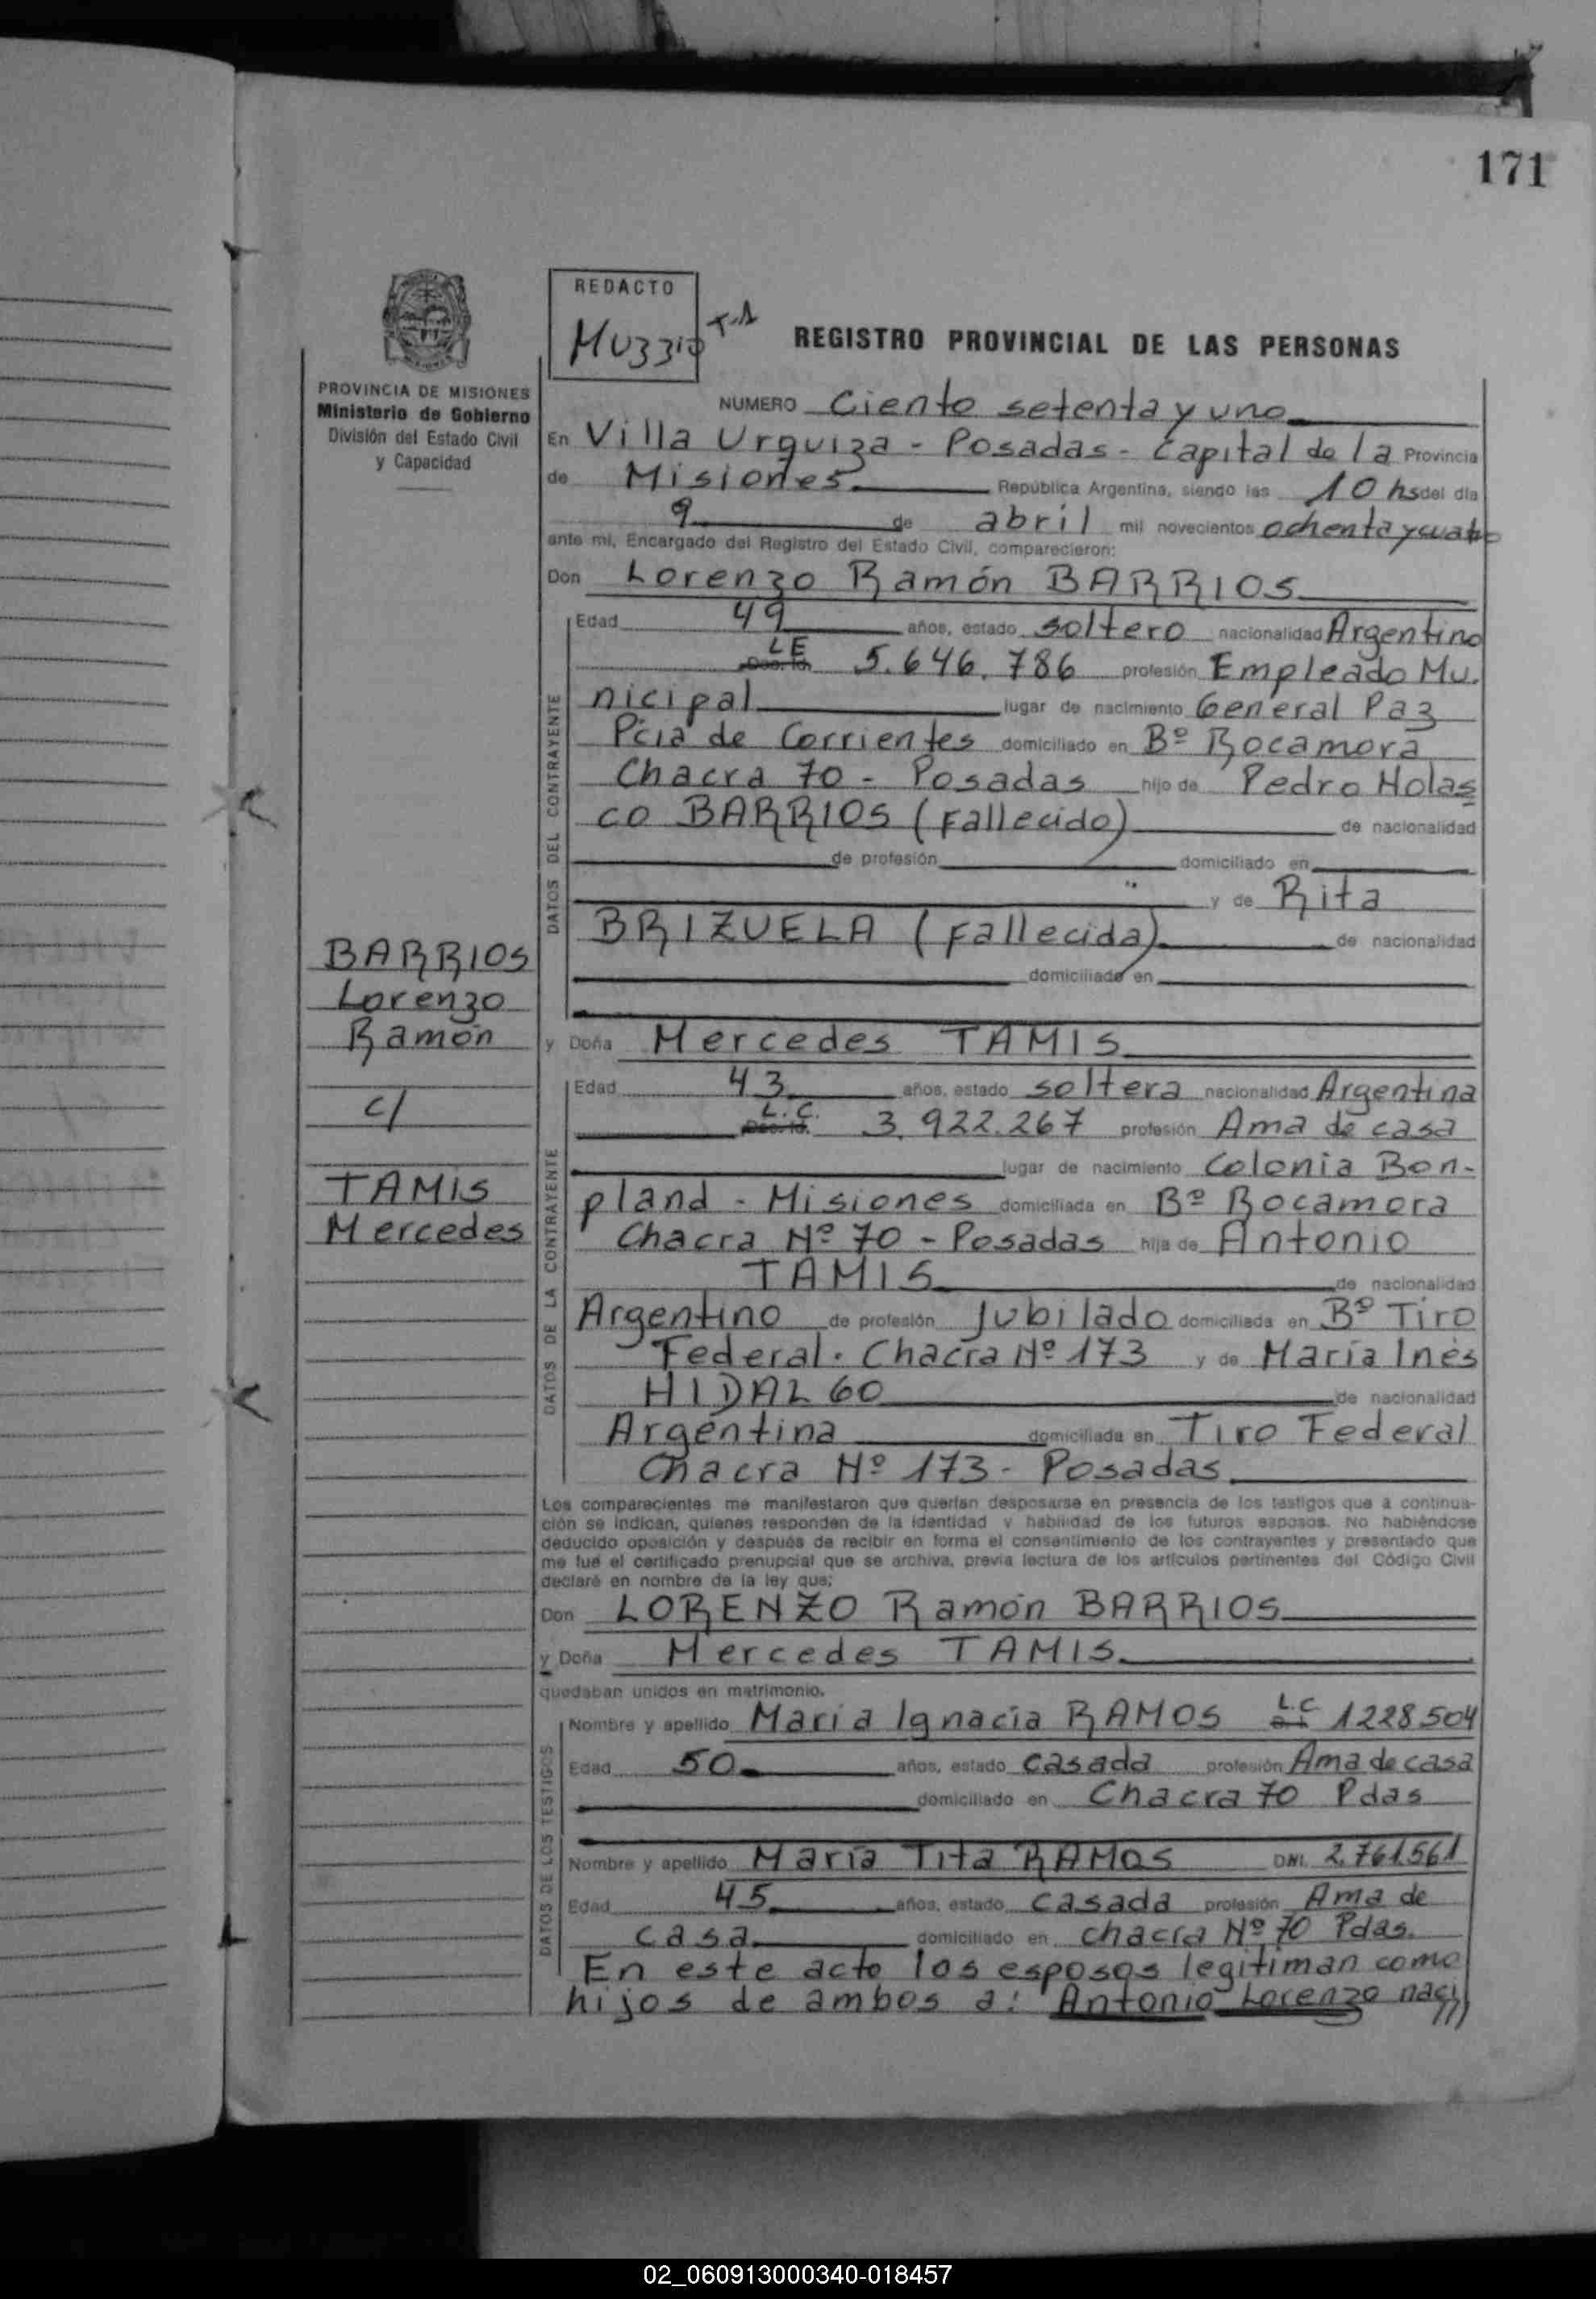 171
REDACTO
Muzzio
PROVINCIA DE MISIONES
Ministerio de Gobierno
División del Estado Civil
y Capacidad
REGISTRO PROVINCIAL DE LAS PERSONAS
NUMERO Ciento setenta y uno
En Villa Urquiza - Posadas - Capital de la Provincia
de Misiones República Argentina, siendo las 10 hs del día
9 de abril mil novecientos ochenta y cuatro
ante mí, Encargado del Registro del Estado Civil, comparecieron:
Don Lorenzo Ramón BARRIOS
DATOS DEL CONTRAYENTE
Edad 49 años, estado soltero nacionalidad Argentino
LE
Doc. Id. 5.646.786 profesión Empleado Mu.
nicipal lugar de nacimiento General Paz
Pcia de Corrientes domiciliado en Bº Rocamora
Chacra 70 - Posadas hijo de Pedro Nolas
co BARRIOS (Fallecido) de nacionalidad
de profesión domiciliado en
y de Rita
BRIZUELA (Fallecida) de nacionalidad
domiciliada en
BARRIOS
Lorenzo
Ramón
c/
TAMIS
Mercedes
y Doña Mercedes TAMIS
DATOS DE LA CONTRAYENTE
Edad 43 años, estado soltera nacionalidad Argentina
L.C.
Doc. Id. 3.922.267 profesión Ama de casa
lugar de nacimiento Colonia Bon-
pland - Misiones domiciliada en Bº Rocamora
Chacra Nº 70 - Posadas hija de Antonio
TAMIS de nacionalidad
Argentino de profesión Jubilado domiciliada en Bº Tiro
Federal. Chacra Nº 173 y de María Inés
HIDALGO de nacionalidad
Argentina domiciliada en Tiro Federal
Chacra Nº 173 - Posadas
Los comparecientes me manifestaron que querían desposarse en presencia de los testigos que a continua-
ción se indican, quienes responden de la identidad y habilidad de los futuros esposos. No habiéndose
deducido oposición y después de recibir en forma el consentimiento de los contrayentes y presentado que
me fué el certificado prenupcial que se archiva, previa lectura de los artículos pertinentes del Código Civil
declaré en nombre de la ley que:
Don LORENZO Ramón BARRIOS
y Doña Mercedes TAMIS
quedaban unidos en matrimonio.
DATOS DE LOS TESTIGOS
Nombre y apellido María Ignacia RAMOS L.C 1228504
Edad 50 años, estado casada profesión Ama de casa
domiciliado en Chacra 70 Pdas
Nombre y apellido María Tita RAMOS DNI. 2.761.561
Edad 45 años, estado casada profesión Ama de
casa domiciliado en chacra Nº 70 Pdas.
En este acto los esposos legitiman como
hijos de ambos a: Antonio Lorenzo naci
02_060913000340-018457